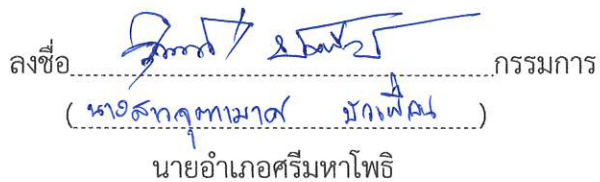 ลงชื่อ กรรมการ
(นางสาวจุฑามาศ บัวเผื่อน)
นายอำเภอศรีมหาโพธิ